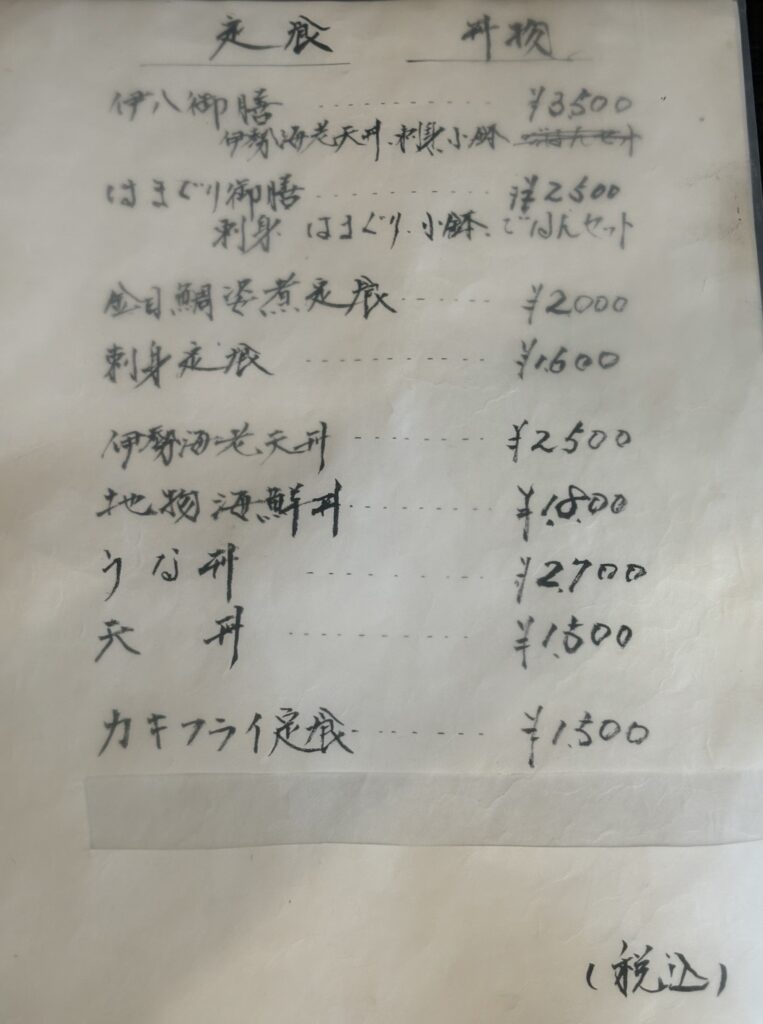 定食 丼物
伊八御膳 ---------- ¥3,500
伊勢海老天丼、刺身、小鉢
はまぐり御膳 ---------- ¥2,500
刺身、はまぐり、小鉢、ごはんセット
金目鯛姿煮定食 ------ ¥2,000
刺身定食 ---------- ¥1,600
伊勢海老天丼 -------- ¥2,500
地物海鮮丼 -------- ¥1,800
うな丼 ---------- ¥2,700
天丼 ---------- ¥1,500
カキフライ定食 ------ ¥1,500
(税込)